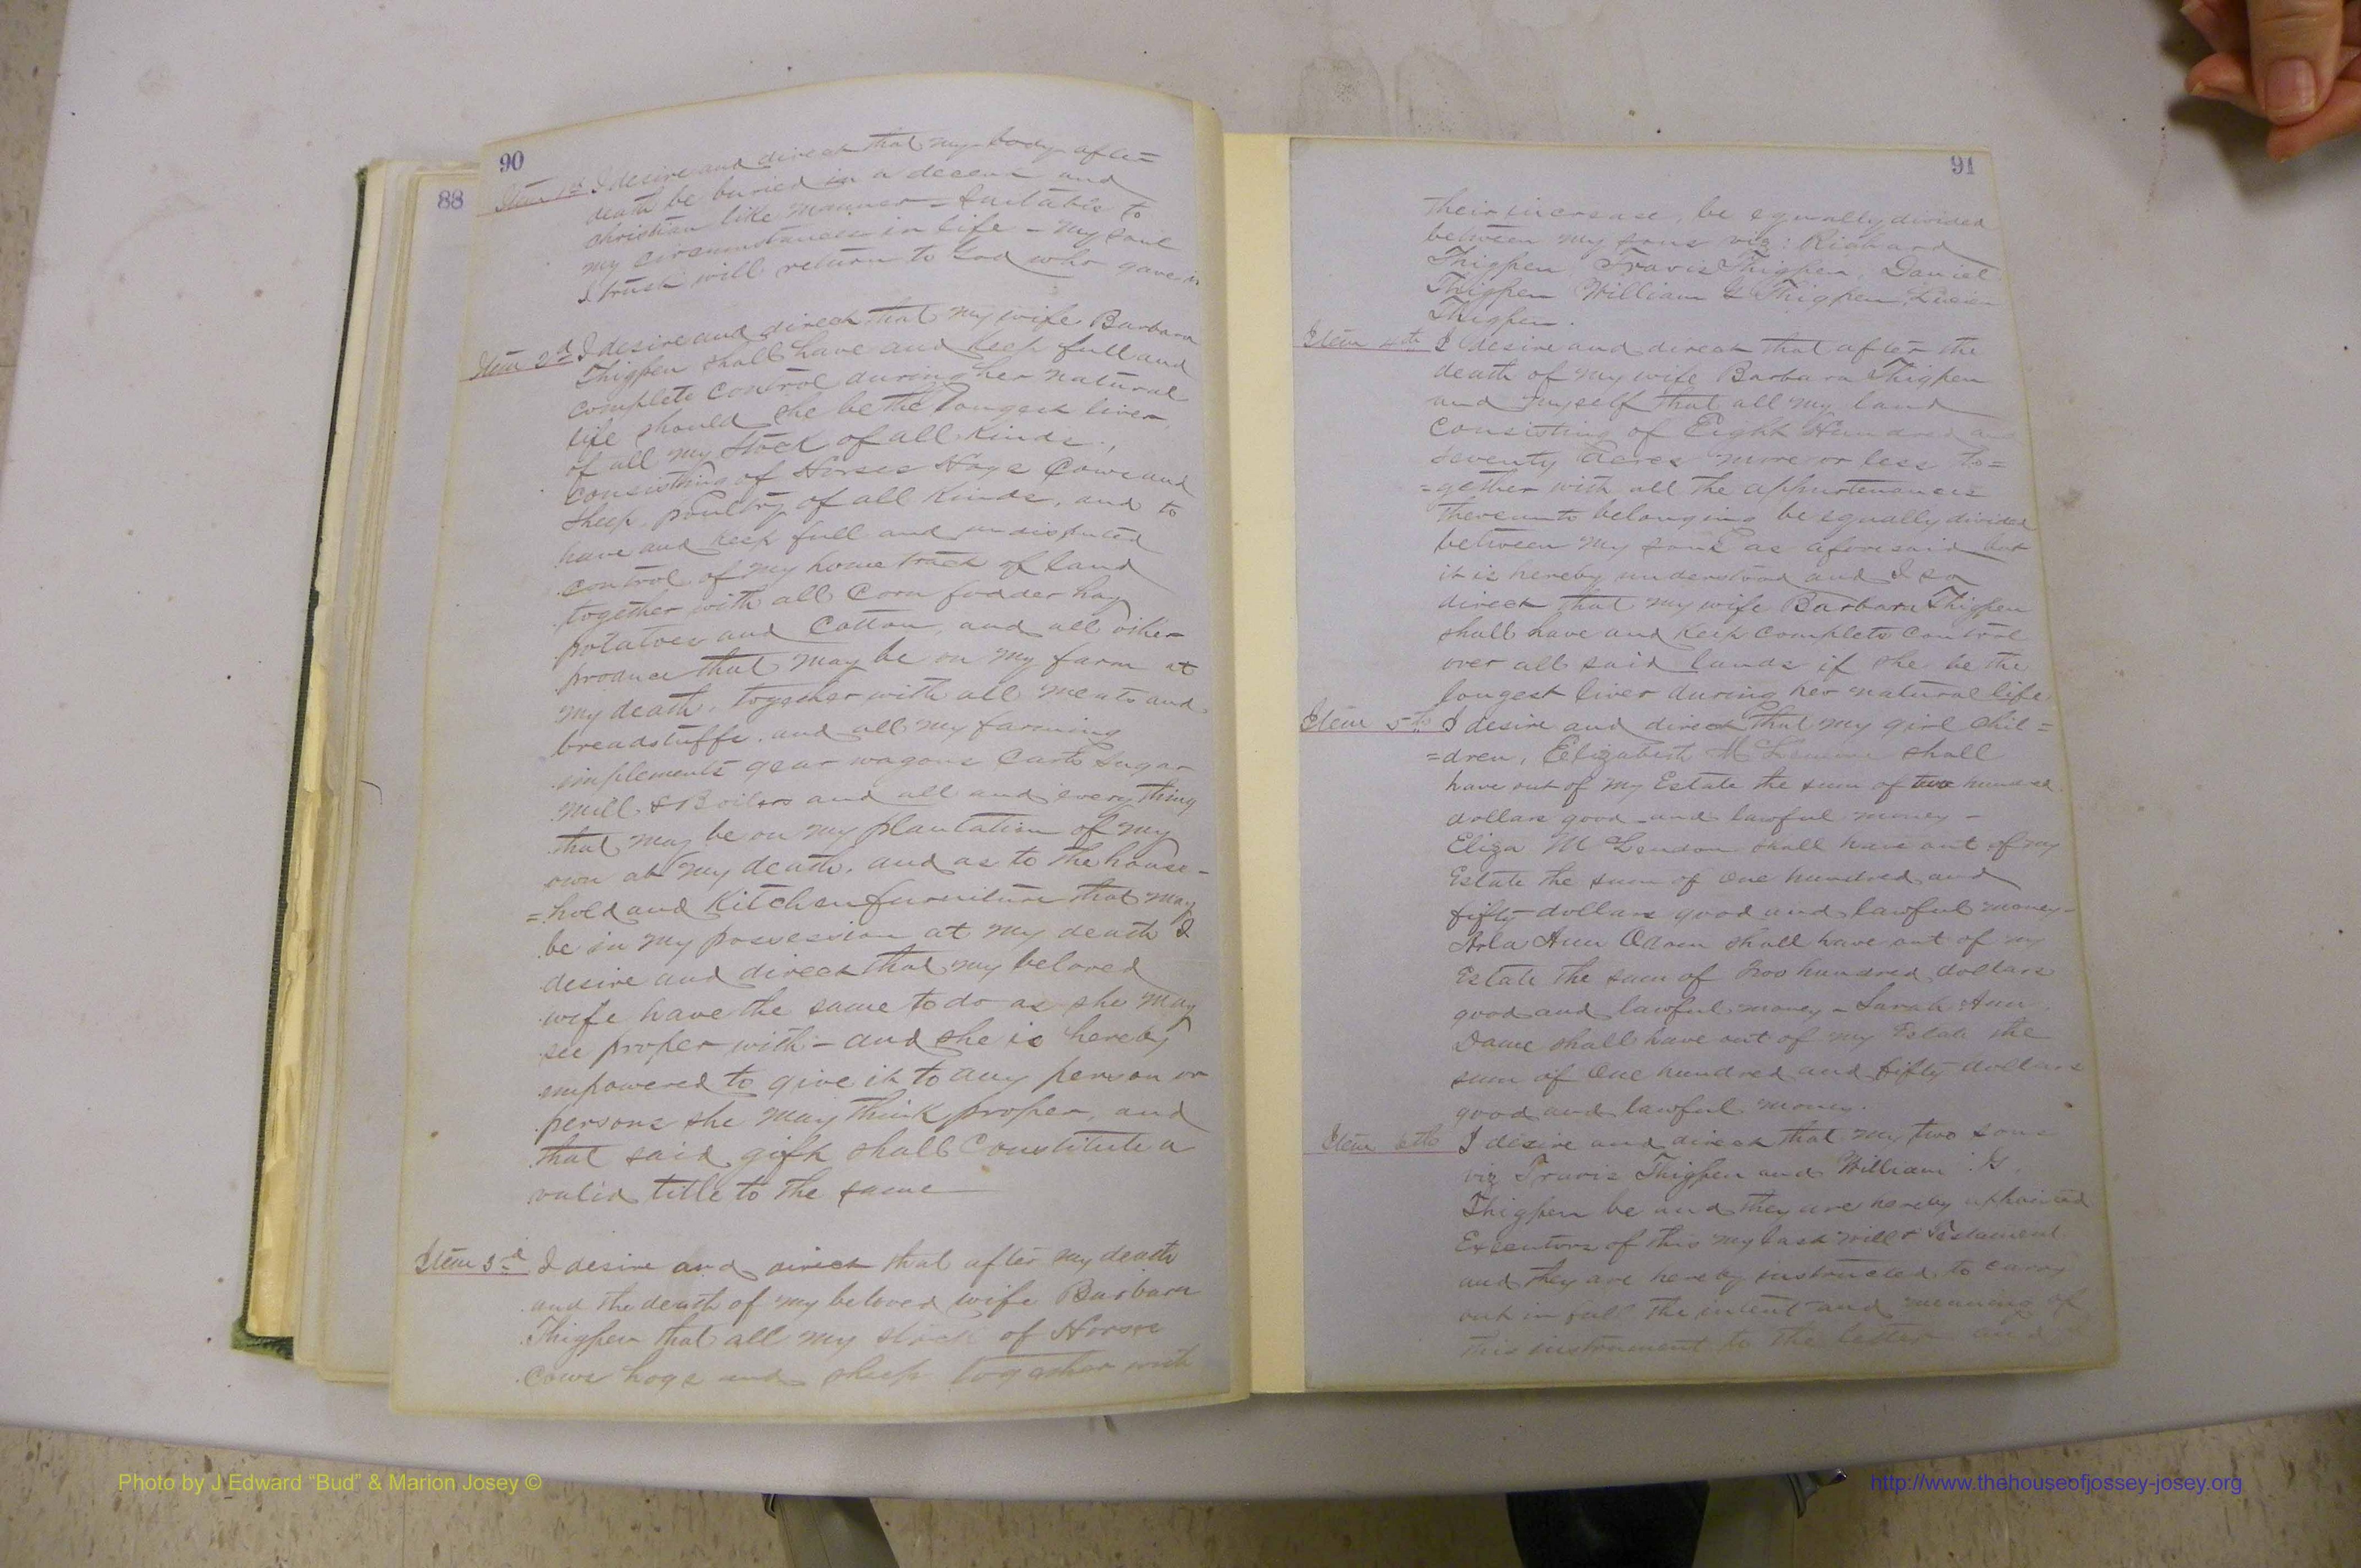 90
88
Item 1st I desire and direct that my body after
death be buried in a decent and
christian like manner - Suitable to
my circumstances in life - my soul
I trust will return to God who gave it
Item 2d I desire and direct that my wife Barbara
Thigpen shall have and keep full and
complete control during her natural
life should she be the longest liver
of all my stock of all kinds,
consisting of Horses Hogs Cows and
Sheep, poultry of all kinds, and to
have and keep full and undisputed
control of my home track of land
together with all Corn fodder hay
potatoes and Cotton, and all other
produce that may be on my farm at
my death, together with all meats and
breadstuffs, and all my farming
implements gear wagons Carts Sugar
mill & Boilers and all and every thing
that may be on my plantation of my
own at my death, and as to the house-
=hold and Kitchen furniture that may
be in my possession at my death I
desire and direct that my beloved
wife have the same to do as she may
see proper with - and she is hereby
empowered to give it to any person or
persons she may think proper, and
that said gift shall Constitute a
valid title to the same
Item 3d I desire and direct that after my death
and the death of my beloved wife Barbara
Thigpen that all my stock of Horse
Cows hogs and sheep together with
91
their increase, be equally divided
between my sons viz: Richard
Thigpen, Travis Thigpen, Daniel
Thigpen William G Thigpen,
Thigpen.
Item 4th I desire and direct that after the
death of my wife Barbara Thigpen
and myself that all my land
Consisting of Eight Hundred and
seventy Acres more or less to=
=gether with all the appurtenances
thereunto belonging be equally divided
between my sons as aforesaid but
it is hereby understood and I so
direct that my wife Barbara Thigpen
shall have and keep complete control
over all said lands if she be the
longest liver during her natural life
Item 5th I desire and direct that my girl chil=
=dren, Elizabeth M shall
have out of my Estate the sum of two hundred
dollars good and lawful money -
Eliza M Lendon shall have out of my
Estate the sum of One hundred and
fifty dollars good and lawful money -
Arla Ann Odom shall have out of my
Estate the sum of two hundred dollars
good and lawful money - Sarah Ann
Dame shall have out of my Estate the
sum of One hundred and fifty dollars
good and lawful money.
Item 6th I desire and direct that my two sons
viz Travis Thigpen and William G.
Thigpen be and they are hereby appointed
Executors of this my last will & Testament
and they are hereby instructed to carry
out in full the intent and meaning of
this instrument to the letter and
Photo by J Edward “Bud” & Marion Josey ©
http://www.thehouseofjossey-josey.org